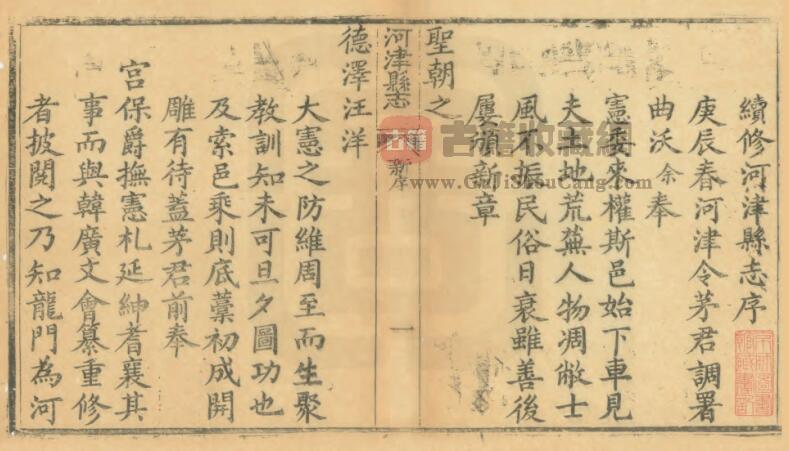 續修河津縣志序
庚辰春河津令茅君調署
曲沃余奉
憲委來權斯邑始下車見
夫土地荒蕪人物凋敝士
風不振民俗日衰雖善後
屢頒新章
聖朝之
河津縣志 新序 一
德澤汪洋
大憲之防維周至而生聚
教訓知未可旦夕圖功也
及索邑乘則底藁初成開
雕有待蓋茅君前奉
宮保爵撫憲札延紳耆襄其
事而與韓廣文會纂重修
者披閱之乃知龍門為河
古籍
古籍收藏網
www.GuJiShouCang.com